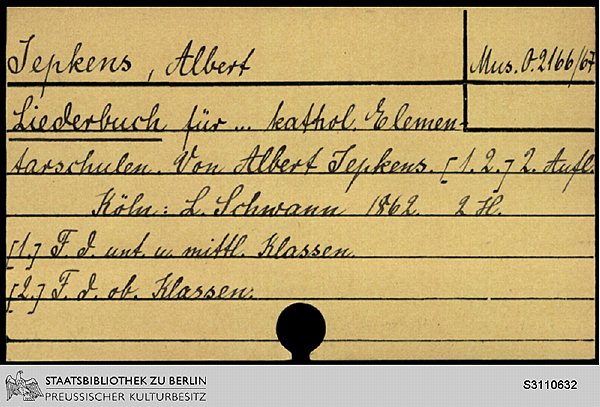 Jepkens, Albert
Mus. O. 2166/67
Liederbuch für ... kathol. Elemen-
tarschulen. Von Albert Jepkens. [1. 2.] 2. Aufl.
Köln: L. Schwann 1862. 2 H.
[1.] F. d. unt. u. mittl. Klassen.
[2.] F. d. ob. Klassen.
STAATSBIBLIOTHEK ZU BERLIN
PREUSSISCHER KULTURBESITZ
S3110632